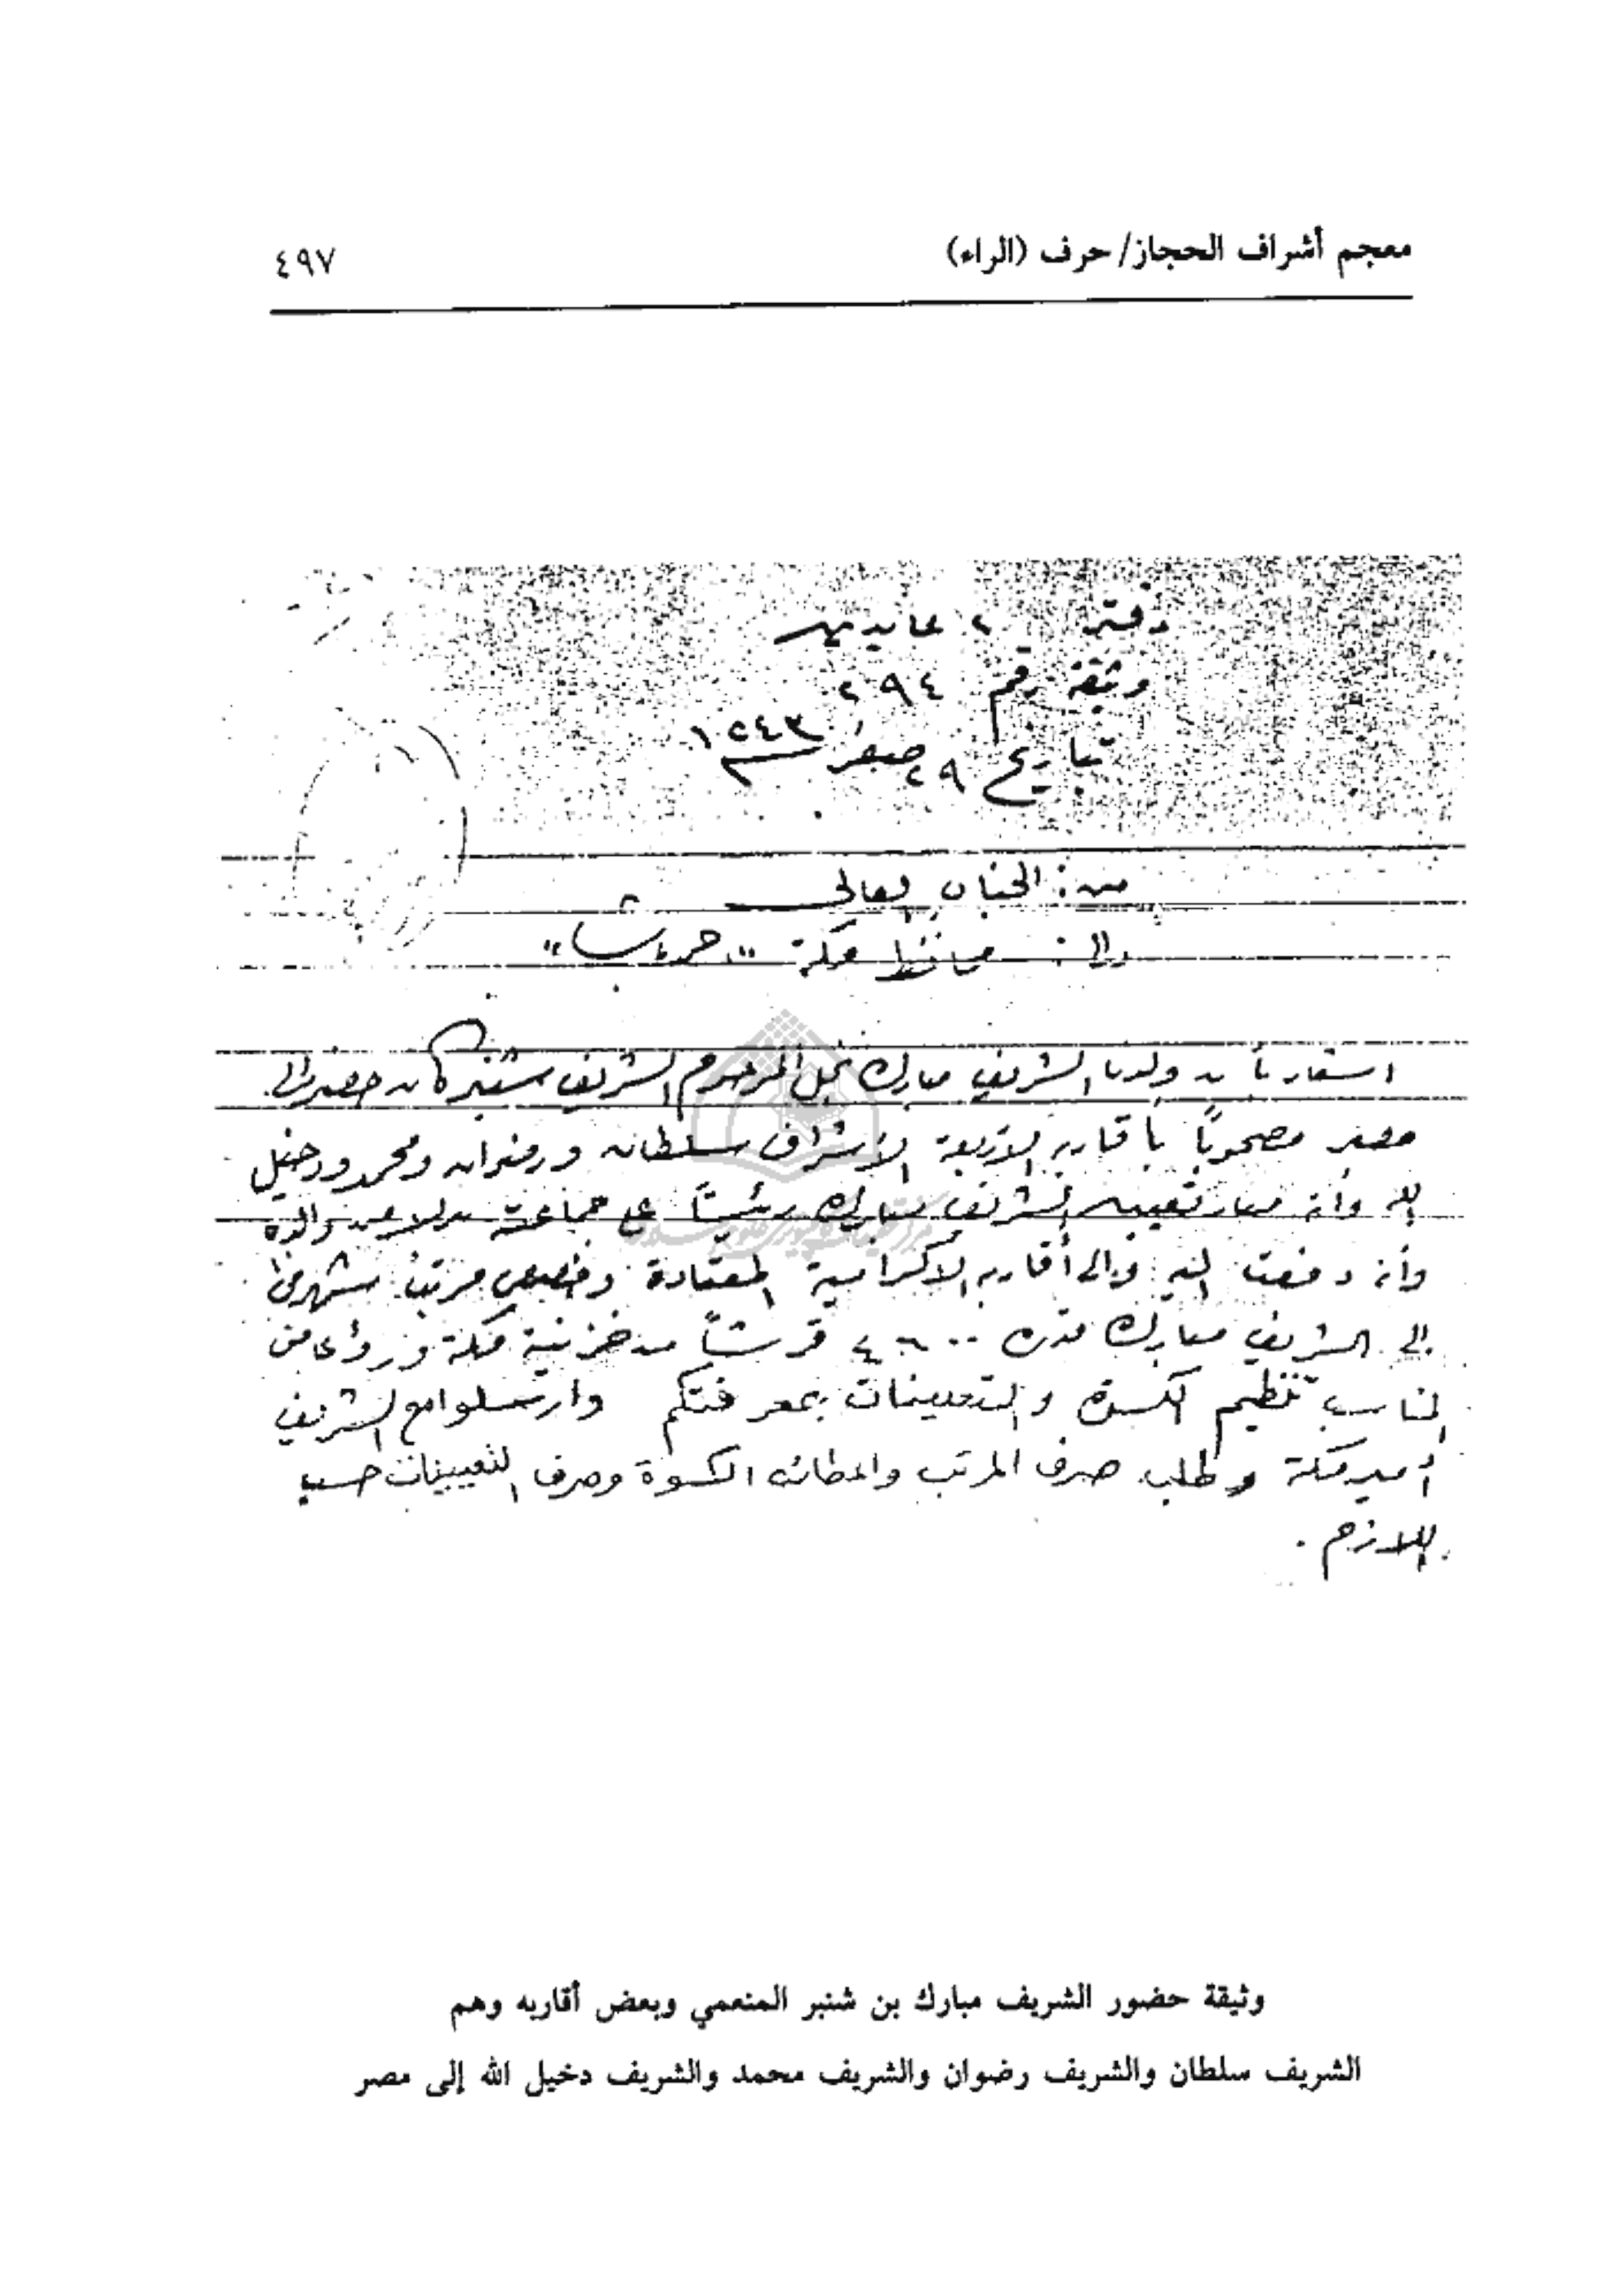 معجم أشراف الحجاز/ حرف (الراء)
٤٩٧
دفتر ٢ عابدين
وثيقة رقم ٢٩٤
بتاريخ ٢٩ صفر سنة ١٢٤٣
من: الجناب العالي
إلى: محافظ مكة "
ولدنا الشريف مبارك نجل المرحوم الشريف شنبر كان حضر إلى
مصر مصحوباً بأقاربه الأربعة الأشراف سلطان ورضوان ومحمد ودخيل
الله وأنه صار تعيين الشريف مبارك رئيساً على جماعته بدلا عن والده
وأنه دفعت إليه وإلى أقاربه الاكرامية المعتادة وخصص مرتب شهري
إلى الشريف مبارك قدره قرشاً من خزينة مكة
المناسب تنظيم الكسوة والتعيينات بمعرفتكم وارسلوا مع الشريف
أمير مكة وطلب صرف المرتب واعطائه الكسوة وصرف التعيينات حسب
اللازم .
وثيقة حضور الشريف مبارك بن شنبر المنعمي وبعض أقاربه وهم
الشريف سلطان والشريف رضوان والشريف محمد والشريف دخيل الله إلى مصر